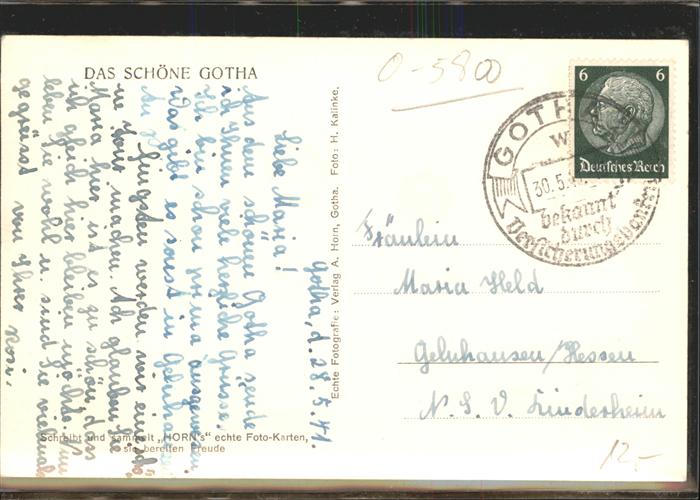 DAS SCHÖNE GOTHA
O-5800
6 6
Deutsches Reich
GOTHA
30.5.
bekannt
durch
Gotha, d. 28.5.41.
Liebe Maria!
Aus dem schönen Gotha sende
ich Ihnen viele herzliche Grüsse.
Ich bin schon prima
Was gibt es sonst in
Pfingsten werden wir
machen. Ich glauben Sie
Maria hier ist es zu schön dass
ich gleich hier bleiben möchte. Nun
leben Sie wohl u. sind Sie vielmals
gegrüsst von Ihrer Rosi.
Echte Fotografie: Verlag A. Horn, Gotha. Foto: H. Kalinke.
Fräulein
Maria Held
Gelnhausen/Hessen
N. S. V. Kinderheim
Schreibt und sammelt „HORN's" echte Foto-Karten,
sie bereiten Freude
12,-